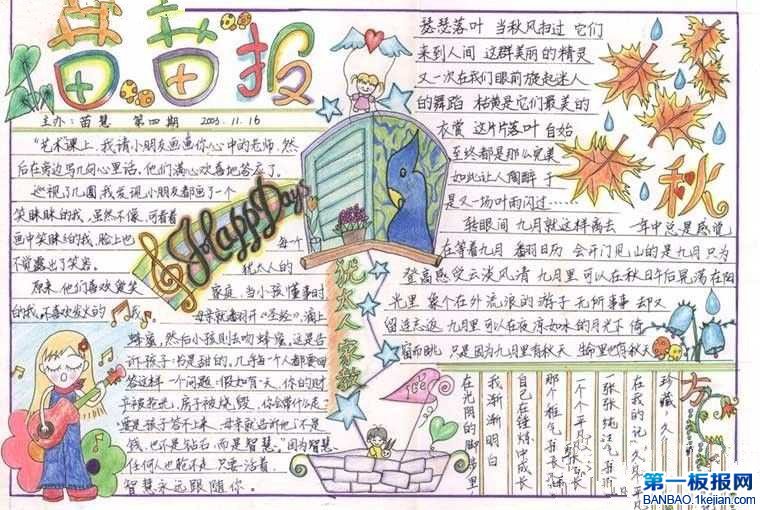 苗苗报
主办：苗慧 第四期 2003.11.16
"艺术"课上，我请小朋友画画你心中的老师，然
后在旁边写几句心里话。他们满心欢喜地答应了。
巡视了几圈，我发现小朋友都画了一个
笑眯眯的我，虽然不像，可看着
画中笑眯眯的我，脸上也
不觉露出了笑容。
原来，他们喜欢爱笑
的我，不喜欢发火的我。
Happy Days
犹太人家教
每个
犹太人的
家庭，当小孩懂事时
母亲就翻开《圣经》，滴上
蜂蜜，然后小孩则去吻蜂蜜，这是告
诉孩子：书是甜的。几乎每个人都要回
答这样一个问题：假如有一天，你的财
产被抢光，房子被烧毁，你会带什么走？
要是孩子答不上来，母亲就告诉他：不是
钱，也不是钻石，而是智慧。"因为智慧，
任何人也抢不走，只要活着，
智慧永远跟随你。
瑟瑟落叶 当秋风扫过 它们
来到人间 这群美丽的精灵
又一次在我们眼前旋起迷人
的舞蹈 枯黄是它们最美的
衣裳 这片片落叶 自始
至终都是那么完美
如此让人陶醉 于
是又一场叶雨闪过……
秋
转眼间 九月就这样离去 一年中总是感觉
在等着九月 翻日历 会开门见山的是九月 只为
登高感受云淡风清 九月里 可以在秋日午后晃荡在阳
光里 像个在外流浪的游子 无所事事 却又
留连忘返 九月里 可以在夜凉如水的月光下 倚
窗而眺 只是因为九月里有秋天 生命里也有秋天
方
珍藏，久久
在我的记
一张张纯洁
一个个平
那个稚气
自己在锤炼中成长
我渐渐明白
在光阴的脚步里
第一板报网
BANBAO.1kejian.com